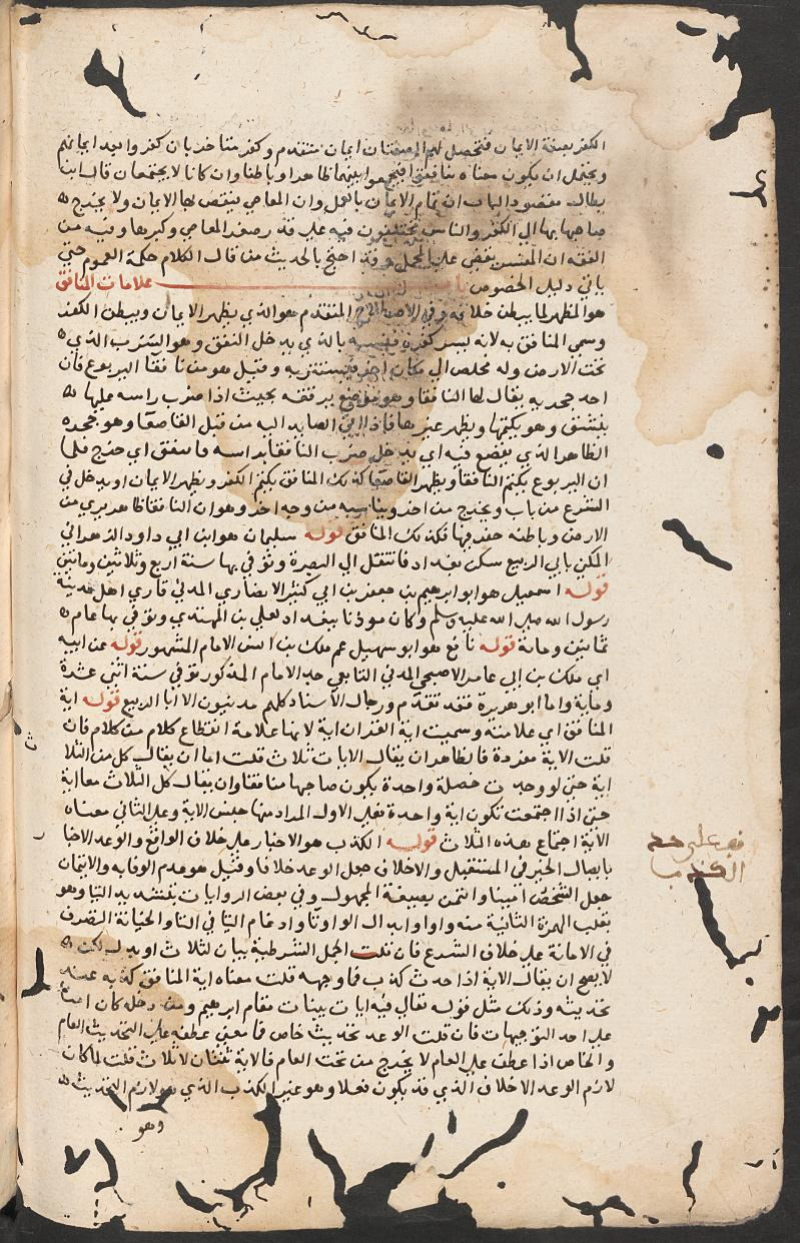 الكفر بصفة الايمان فتحصل لهم الصفتان ايمان متقدم وكفر متاخر بان كفروا بعد ايمانهم
ويحتمل ان يكون معناه منافقين اي جمعوا بينهما ظاهرا وباطنا وان كانا لا يجتمعان قال ابن
بطال مقصود الباب ان تمام الايمان بالعمل وان المعاصي ينقص بها الايمان ولا يخرج
صاحبها بها الي الكفر والناس مختلفون فيه علي قدر صغر المعاصي وكبرها وفيه من
الفقه ان المفسر يقضي علي المجمل وفيه احتج بالحديث من قال الكلام حكمه العموم حتي
ياتي دليل الخصوص باب علامات المنافق
هو المظهر لما يبطن خلافه وفي الاصطلاح المتقدم هو الذي يظهر الايمان ويبطن الكفر
وسمي المنافق به لانه يستر كفره فشبه بالذي يدخل النفق وهو السرب الذي
تحت الارض وله مخلص الي مكان اخر فيستتر به وقيل هو من نافقا اليربوع فان
احد جحريه يقال لها النافقا وهو موضع يرققه بحيث اذا ضرب راسه عليها
ينشق وهو يكتمها ويظهر غيرها فاذا اتي الصايد اليه من قبل القاصعا وهو جحره
الظاهر الذي يقصع فيه اي يدخل ضرب النافقا براسه فانتفق اي خرج فكما
ان اليربوع يكتم النافقا ويظهر القاصعا كذلك المنافق يكتم الكفر ويظهر الايمان او يدخل في
الشرع من باب ويخرج من اخر ويناسبه من وجه اخر وهو ان النافقا ظاهره يري من
الارض وباطنه حفر فيها فكذلك المنافق قوله سليمان هو ابن ابي داود الزهراني
المكني بابي الربيع سكن بغداد فانتقل الي البصرة وتوفي بها سنة اربع وثلاثين وماتين
قوله اسمعيل هو ابو ابرهيم بن جعفر بن ابي كثير الانصاري المدني قاري اهل مدينة
رسول الله صلي الله عليه وسلم وكان موذنا ببغداد لعلي بن المهتدي وتوفي بها عام
ثمانين ومائة قوله نافع هو ابو سهيل عم ملك بن انس الامام المشهور قوله عن ابيه
اي ملك بن ابي عامر الاصبحي المدني التابعي جد الامام المذكور توفي سنة اثنتي عشرة
وماية واما ابو هريرة فقد تقدم ورجال الاسناد كلهم مدنيون الا ابا الربيع قوله اية
المنافق اي علامته وسميت اية القران اية لانها علامة انقطاع كلام من كلام فان
قلت الاية مفردة فالظاهر ان يقال الايات ثلاث قلت اما ان يقال كل من الثلا
اية حتي لو وجدت خصلة واحدة يكون صاحبها منافقا وان يقال كل الثلاث معا اية
حتي اذا اجتمعت تكون اية واحدة فعلي الاول المراد منها جنس الاية وعلي الثاني معناه
الاية اجتماع هذه الثلاث قوله الكذب هو الاخبار علي خلاف الواقع والوعد الاخبا
بايصال الخير في المستقبل والاخلاف جعل الوعد خلافا وقيل هو عدم الوفا به والايتمان
جعل الشخص امينا واوتمن بصيغة المجهول وفي بعض الروايات بتشديد التا وهو
بقلب الهمزة الثانية منه واوا وابدال الواو تا وادغام التا في التا والخيانة التصرف
في الامانة علي خلاف الشرع فان قلت الجمل الشرطية بيان لثلاث او بدل لكن
لا يصح ان يقال الاية اذا حدث كذب فما وجهه قلت معناه اية المنافق كذبه عند
تحديثه وذلك مثل قوله تعالي فيه ايات بينات مقام ابرهيم ومن دخله كان امنا
علي احد التوجيهات فان قلت الوعد تحديث خاص فما معني عطفه علي التحديث العام
والخاص اذا عطف علي العام لا يخرج من تحت العام فالاية ثنتان لا ثلاث قلت لما كان
لازم الوعد الاخلاف الذي قد يكون فعلا وهو غير الكذب الذي هو لازم التحديث
وهو
الكذب